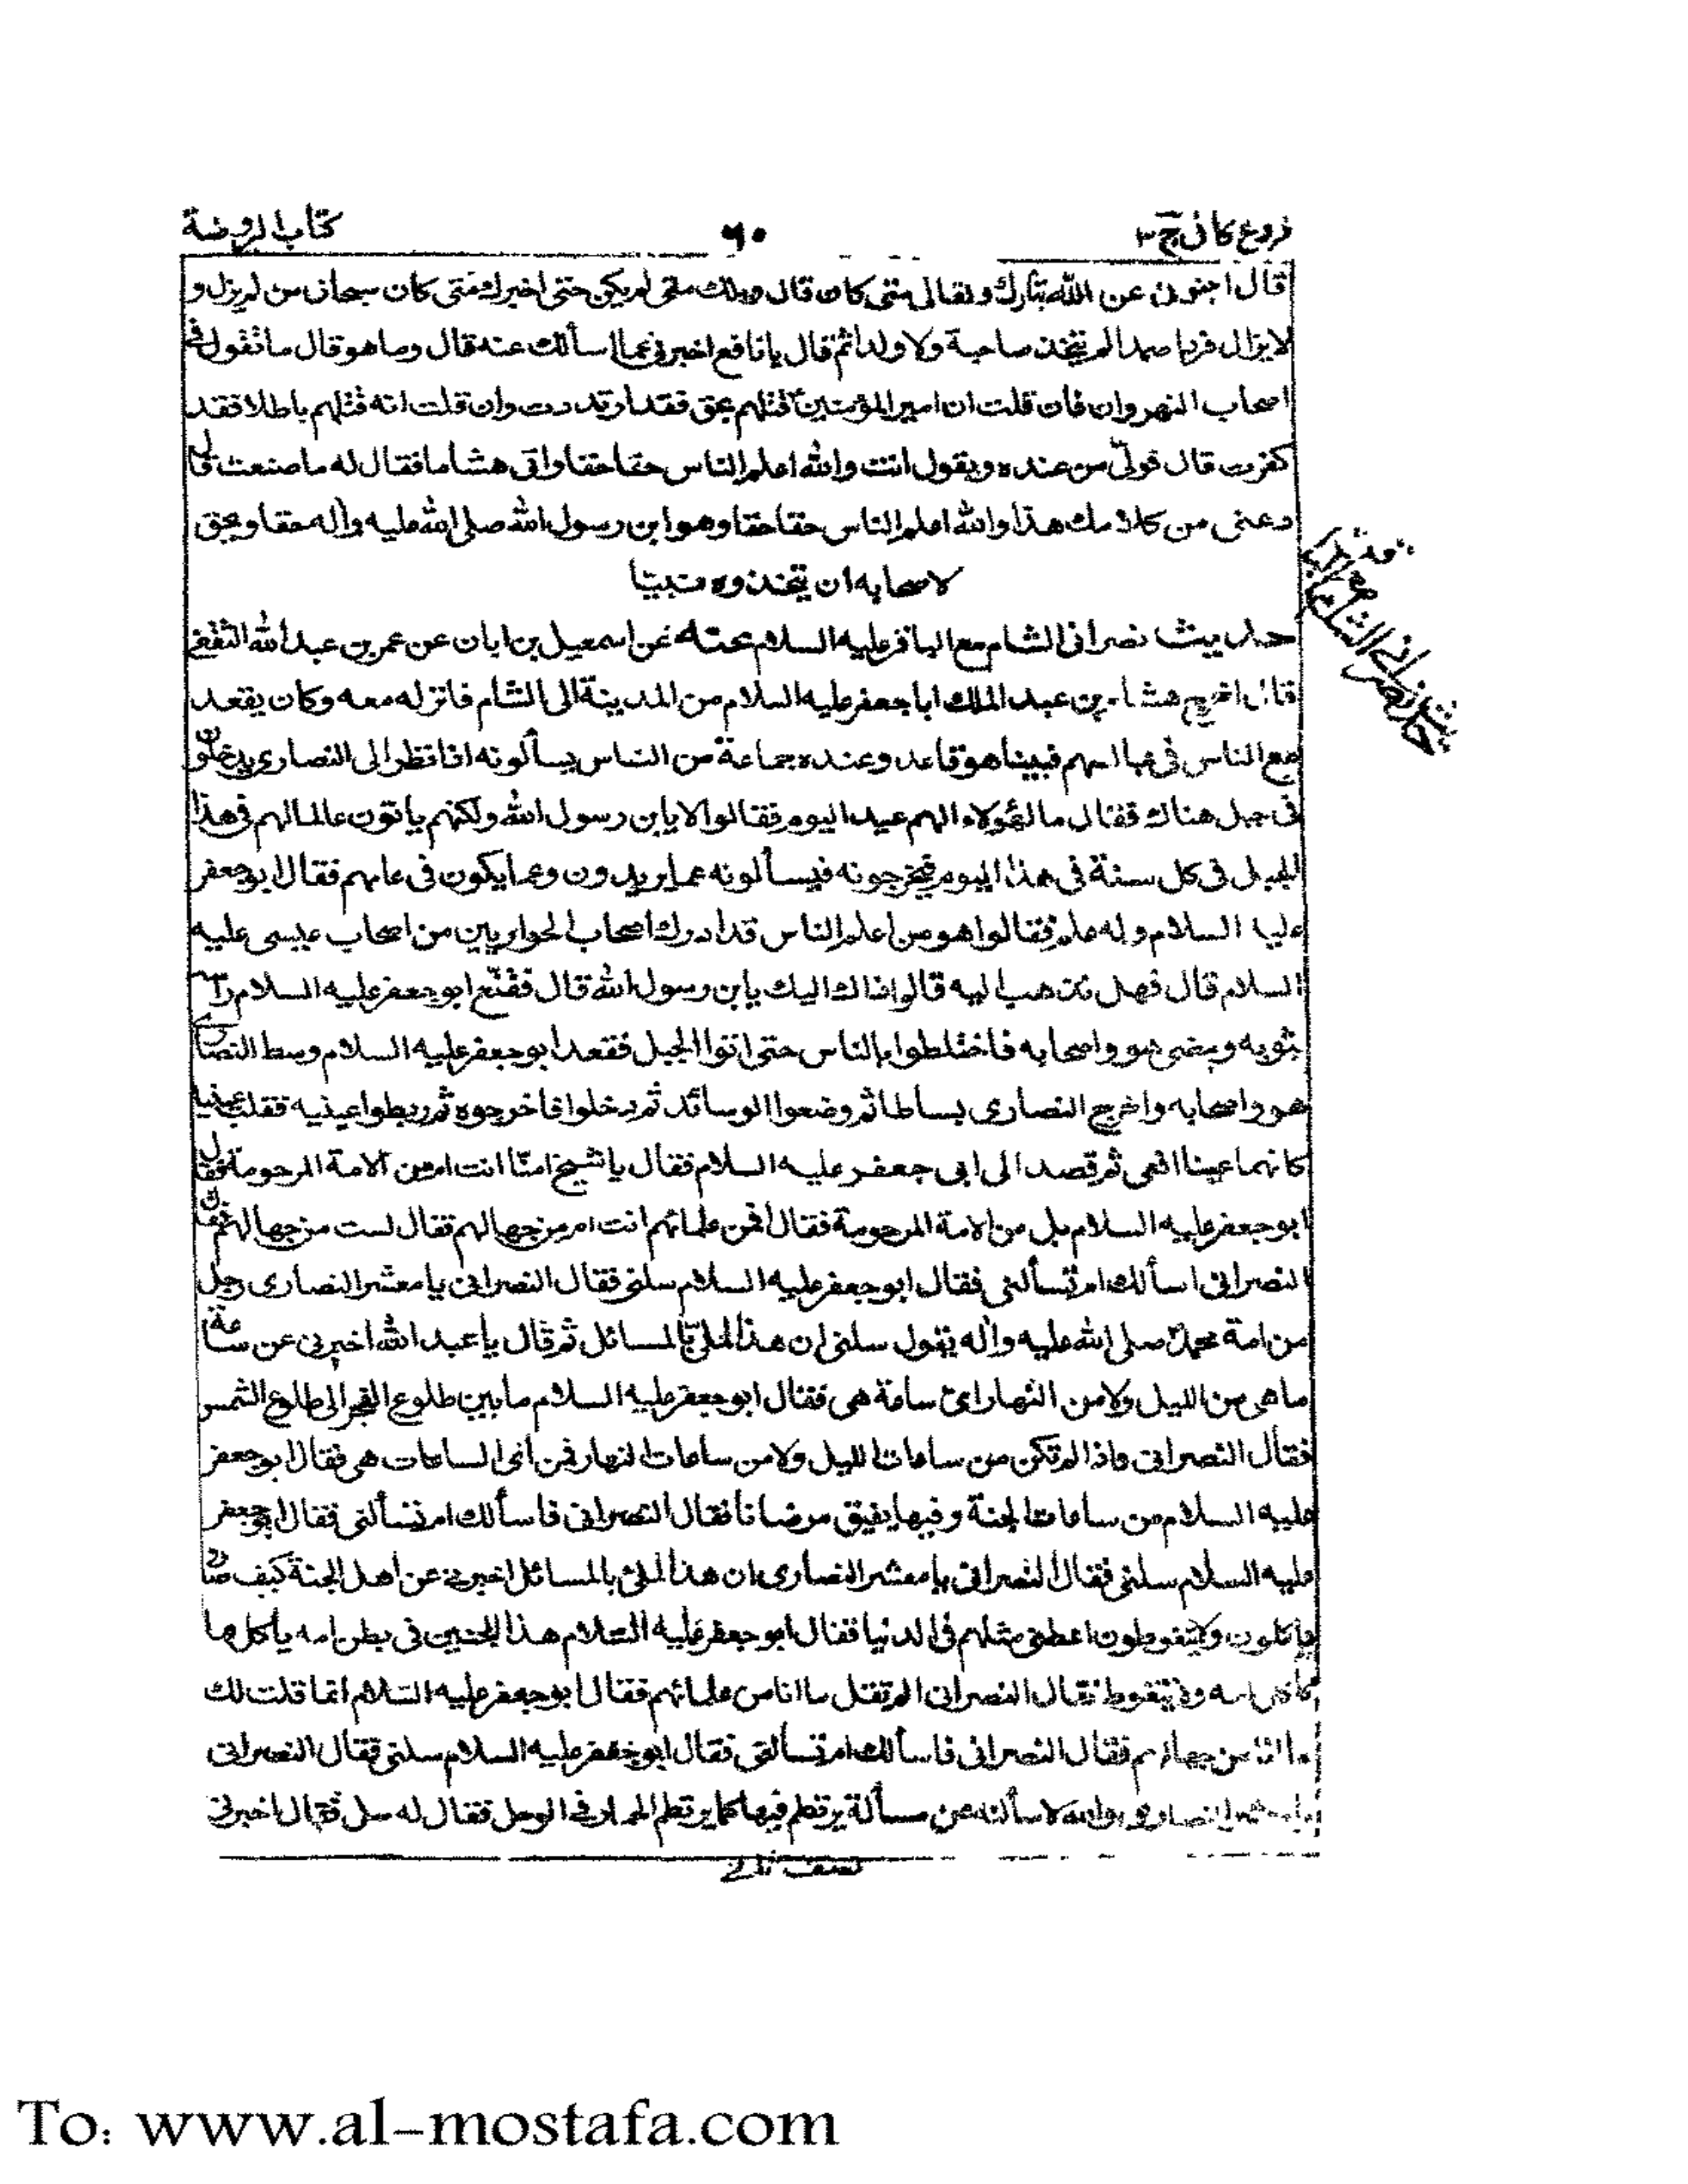 فروع كافى ج ٣
٦٠
كتاب الروضة
قال اخبرنى عن الله تبارك وتعالى متى كان قال ويلك متى لم يكن حتى اخبرك متى كان سبحان من لم يزل و
لا يزال فردا صمدا لم يتخذ صاحبة ولا ولدا ثم قال يا نافع اخبرنى عما اسألك عنه قال وما هو قال ما تقول فى
اصحاب النهروان فان قلت ان امير المؤمنين قتلهم بحق فقد ارتددت وان قلت انه قتلهم باطلا فقد
كفرت قال فولى من عنده ويقول انت والله اعلم الناس حقا حقا واتى هشاما فقال له ما صنعت قال
دعنى من كلامك هذا والله اعلم الناس حقا حقا وهو ابن رسول الله صلى الله عليه وآله حقا ويحق
لاصحابه ان يتخذوه نبيا
حديث نصرانى الشام مع الباقر عليه السلام عنه عن اسمعيل بن ابان عن عمر بن عبد الله الثقفى
قال اخرج هشام بن عبد الملك ابا جعفر عليه السلام من المدينة الى الشام فانزله معه وكان يقعد
مع الناس فى مجالسهم فبينا هو قاعد وعنده جماعة من الناس يسألونه اذا نظر الى النصارى يدخلون
فى جبل هناك فقال ما لهؤلاء الهم عيد اليوم فقالوا لا يا بن رسول الله ولكنهم ياتون عالما لهم فى هذا
الجبل فى كل سنة فى هذا اليوم فيخرجونه فيسألونه عما يريدون وعما يكون فى عامهم فقال ابو جعفر
عليه السلام وله علم فقالوا هو من اعلم الناس قد ادرك اصحاب الحواريين من اصحاب عيسى عليه
السلام قال فهل نذهب اليه قالوا ذاك اليك يا بن رسول الله قال فقنع ابو جعفر عليه السلام رأسه
بثوبه ومضى هو واصحابه فاختلطوا بالناس حتى اتوا الجبل فقعد ابو جعفر عليه السلام وسط النصارى
هو واصحابه واخرج النصارى بساطا ثم وضعوا الوسائد ثم دخلوا فاخرجوه ثم ربطوا عينيه فقلب عينيه
كانهما عينا افعى ثم قصد الى ابى جعفر عليه السلام فقال يا شيخ امنا انت ام من الامة المرحومة فقال
ابو جعفر عليه السلام بل من الامة المرحومة فقال افمن علمائهم انت ام من جهالهم فقال لست من جهالهم فقال
النصرانى اسألك ام تسألنى فقال ابو جعفر عليه السلام سلنى فقال النصرانى يا معشر النصارى رجل
من امة محمد صلى الله عليه وآله يقول سلنى ان هذا لملئ بالمسائل ثم قال يا عبد الله اخبرنى عن ساعة
ما هى من الليل ولا من النهار اى ساعة هى فقال ابو جعفر عليه السلام ما بين طلوع الفجر الى طلوع الشمس
فقال النصرانى فاذا لم تكن من ساعات الليل ولا من ساعات النهار فمن اى الساعات هى فقال ابو جعفر
عليه السلام من ساعات الجنة وفيها يفيق مرضانا فقال النصرانى فاسألك ام تسألنى فقال ابو جعفر
عليه السلام سلنى فقال النصرانى يا معشر النصارى ان هذا لملئ بالمسائل اخبرنى عن اهل الجنة كيف صاروا
ياكلون ولا يتغوطون اعطنى مثلهم فى الدنيا فقال ابو جعفر عليه السلام هذا الجنين فى بطن امه يأكل مما
تأكل امه ولا يتغوط فقال النصرانى الم تقل ما انا من علمائهم فقال ابو جعفر عليه السلام انما قلت لك
ما انا من جهالهم فقال النصرانى فاسألك ام تسألنى فقال ابو جعفر عليه السلام سلنى فقال النصرانى
يا معشر النصارى والله لاسألنه عن مسألة يرتطم فيها كما يرتطم الحمار فى الوحل فقال له سل فقال اخبرنى
حديث نصرانى الشام مع الباقر
To: www.al-mostafa.com